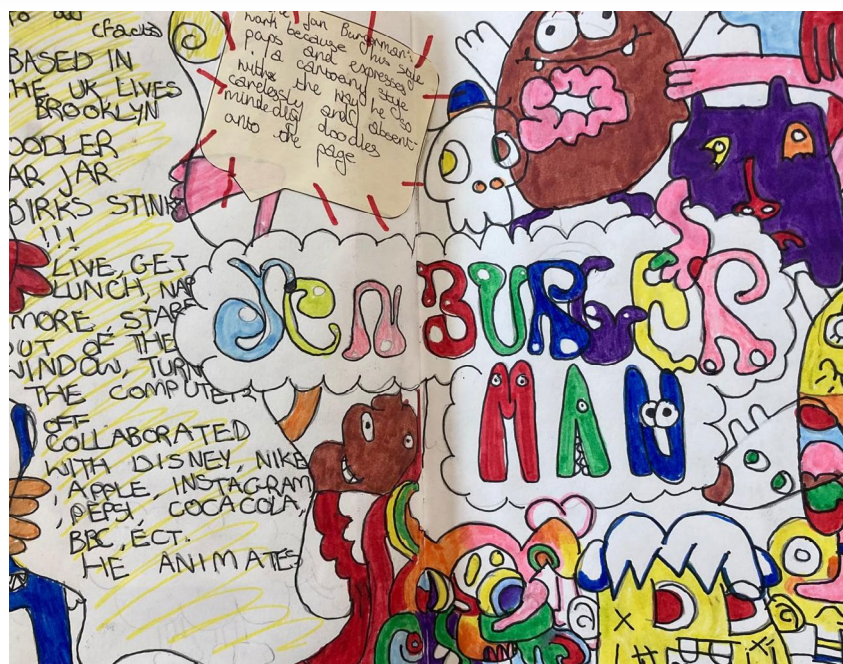 facts
BASED IN
THE UK LIVES
BROOKLYN
OODLER
AR JAR
DIRKS STINK
!!!
LIVE, GET
LUNCH, NAP
MORE, STARE
OUT OF THE
WINDOW, TURN
THE COMPUTER
OFF
COLLABORATED
WITH DISNEY, NIKE
, APPLE, INSTAGRAM
, PEPSI COCACOLA,
BBC, ECT.
HE ANIMATES
Jan Burgerman's
work because his style
paps and expresses
a cartoony style
the way he so
carelessly and absent
mindedly doodles
onto the page
JEN BURGER
MAN